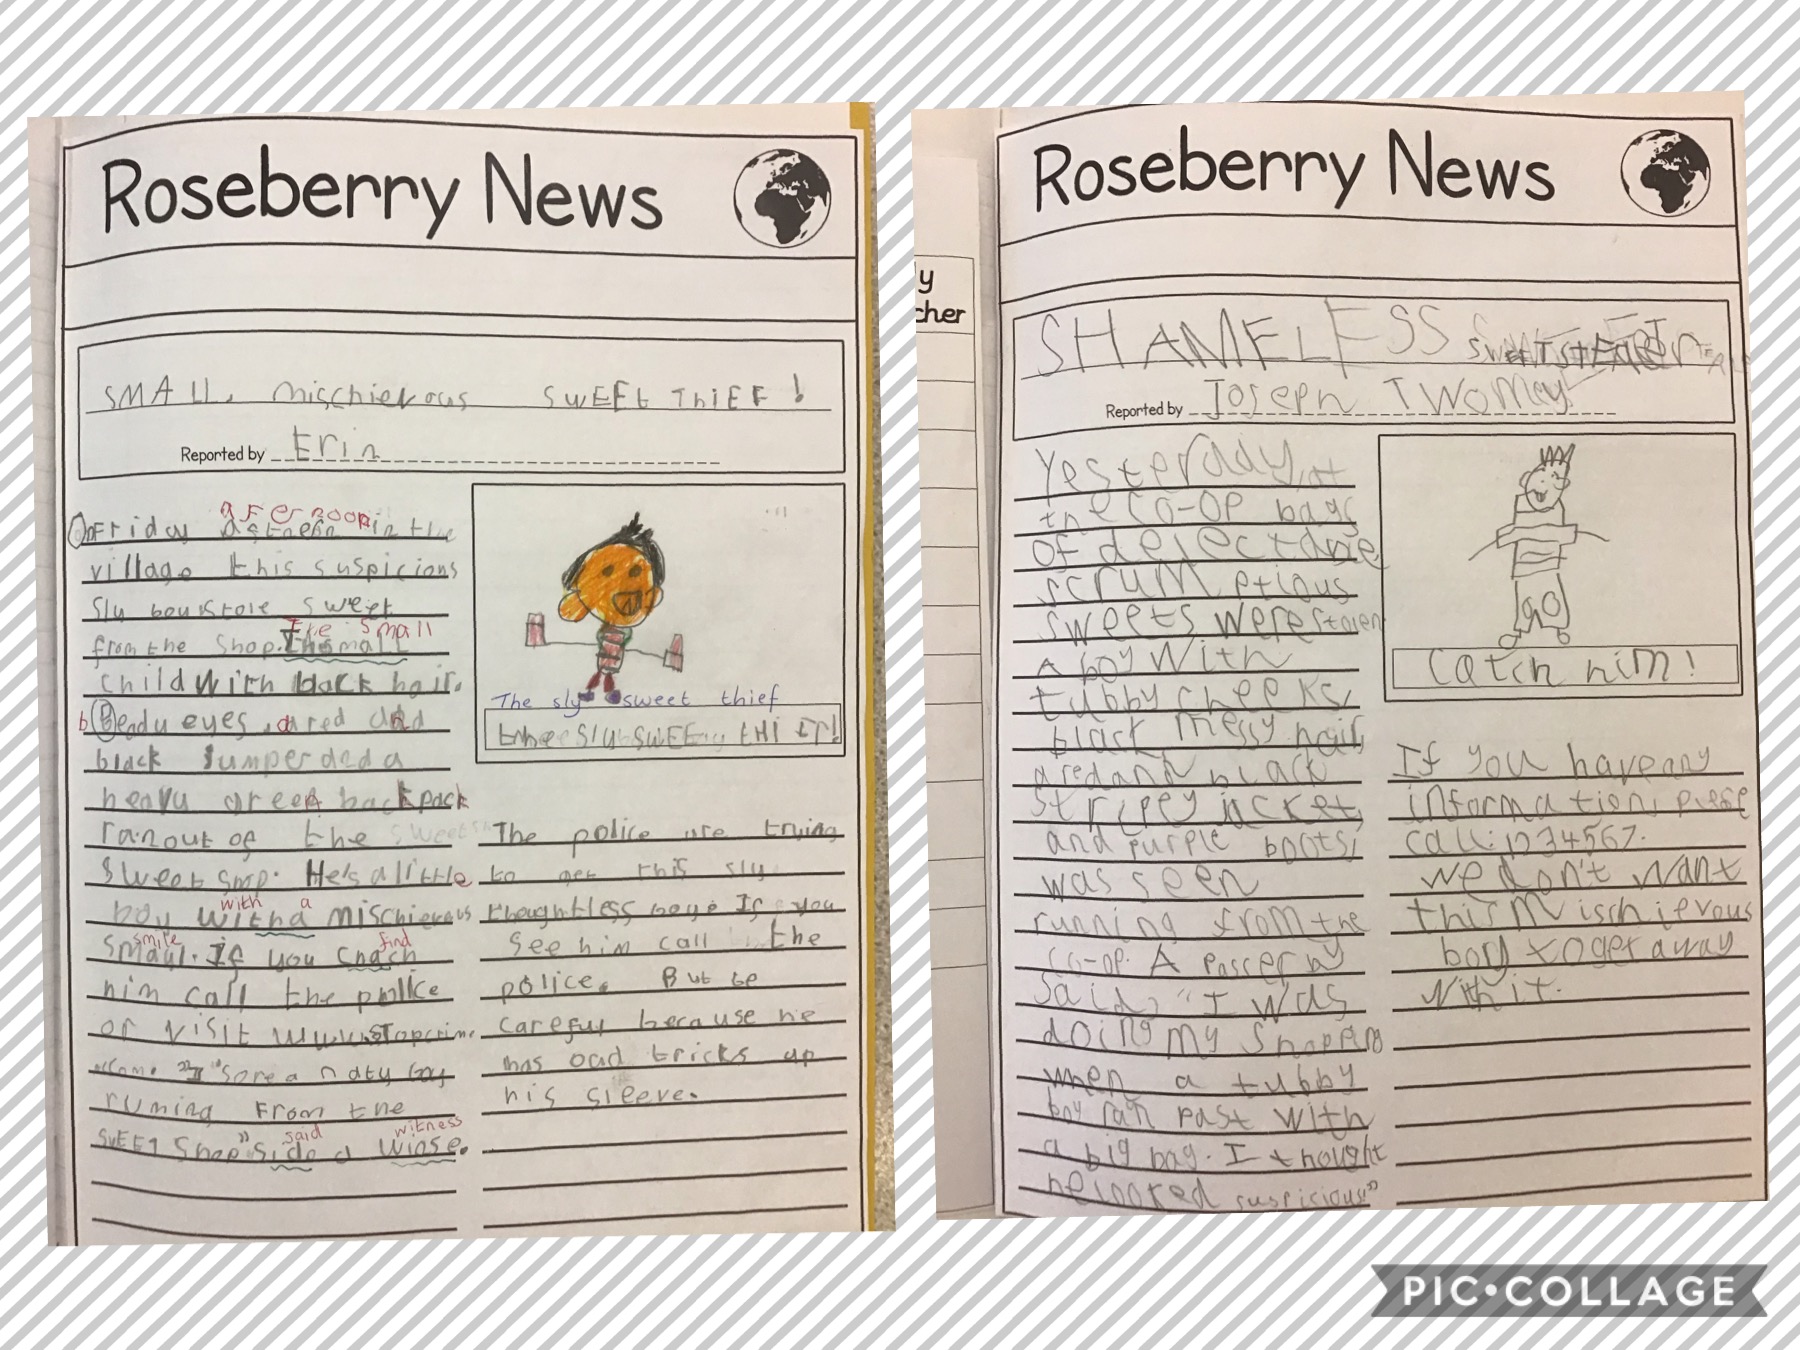 Roseberry News
SMALL, mischievous SWEEt THiEF !
Reported by Erin
aFernoon
On Friday in the
village this suspicions
sly boy stole sweet
The Small
from the shop. the small
child with black hair.
b Beady eyes , a red and
black Jumper dad a
heavy green backpack
ran out of the sweet
sweet shop. He's a little
with a
boy with a mischievous
smile find
If you
him call the police
or visit www.stopcrime
.com. "I sore a naty boy
runing From the
said witness
SWEET Shop" side a winse.
The sly sweet thief
thee Sly SWEET tHiEf!
The police are trying
to get this sly
thoughtless boy. If you
see him call the
police. But be
careful because he
has bad tricks up
his sleeve.
y
cher
Roseberry News
SHAMELESS SWEET StEaler
Reported by Joseph Twomey
Yesterday, at
the CO-OP bags
of delectable
scrumptious
sweets were stolen
A boy With
tubby cheeks,
black messy hair,
a red and black
stripey jacket,
and purple boots,
was seen
running from the
co-op. A passer by
said, "I was
doing my Shopping
when a tubby
boy ran past with
a big bag. I thought
he looked suspicious"
Catch him!
If you have any
information, please
call: 1234567.
We don't want
this mischievous
boy to get away
with it.
PIC•COLLAGE